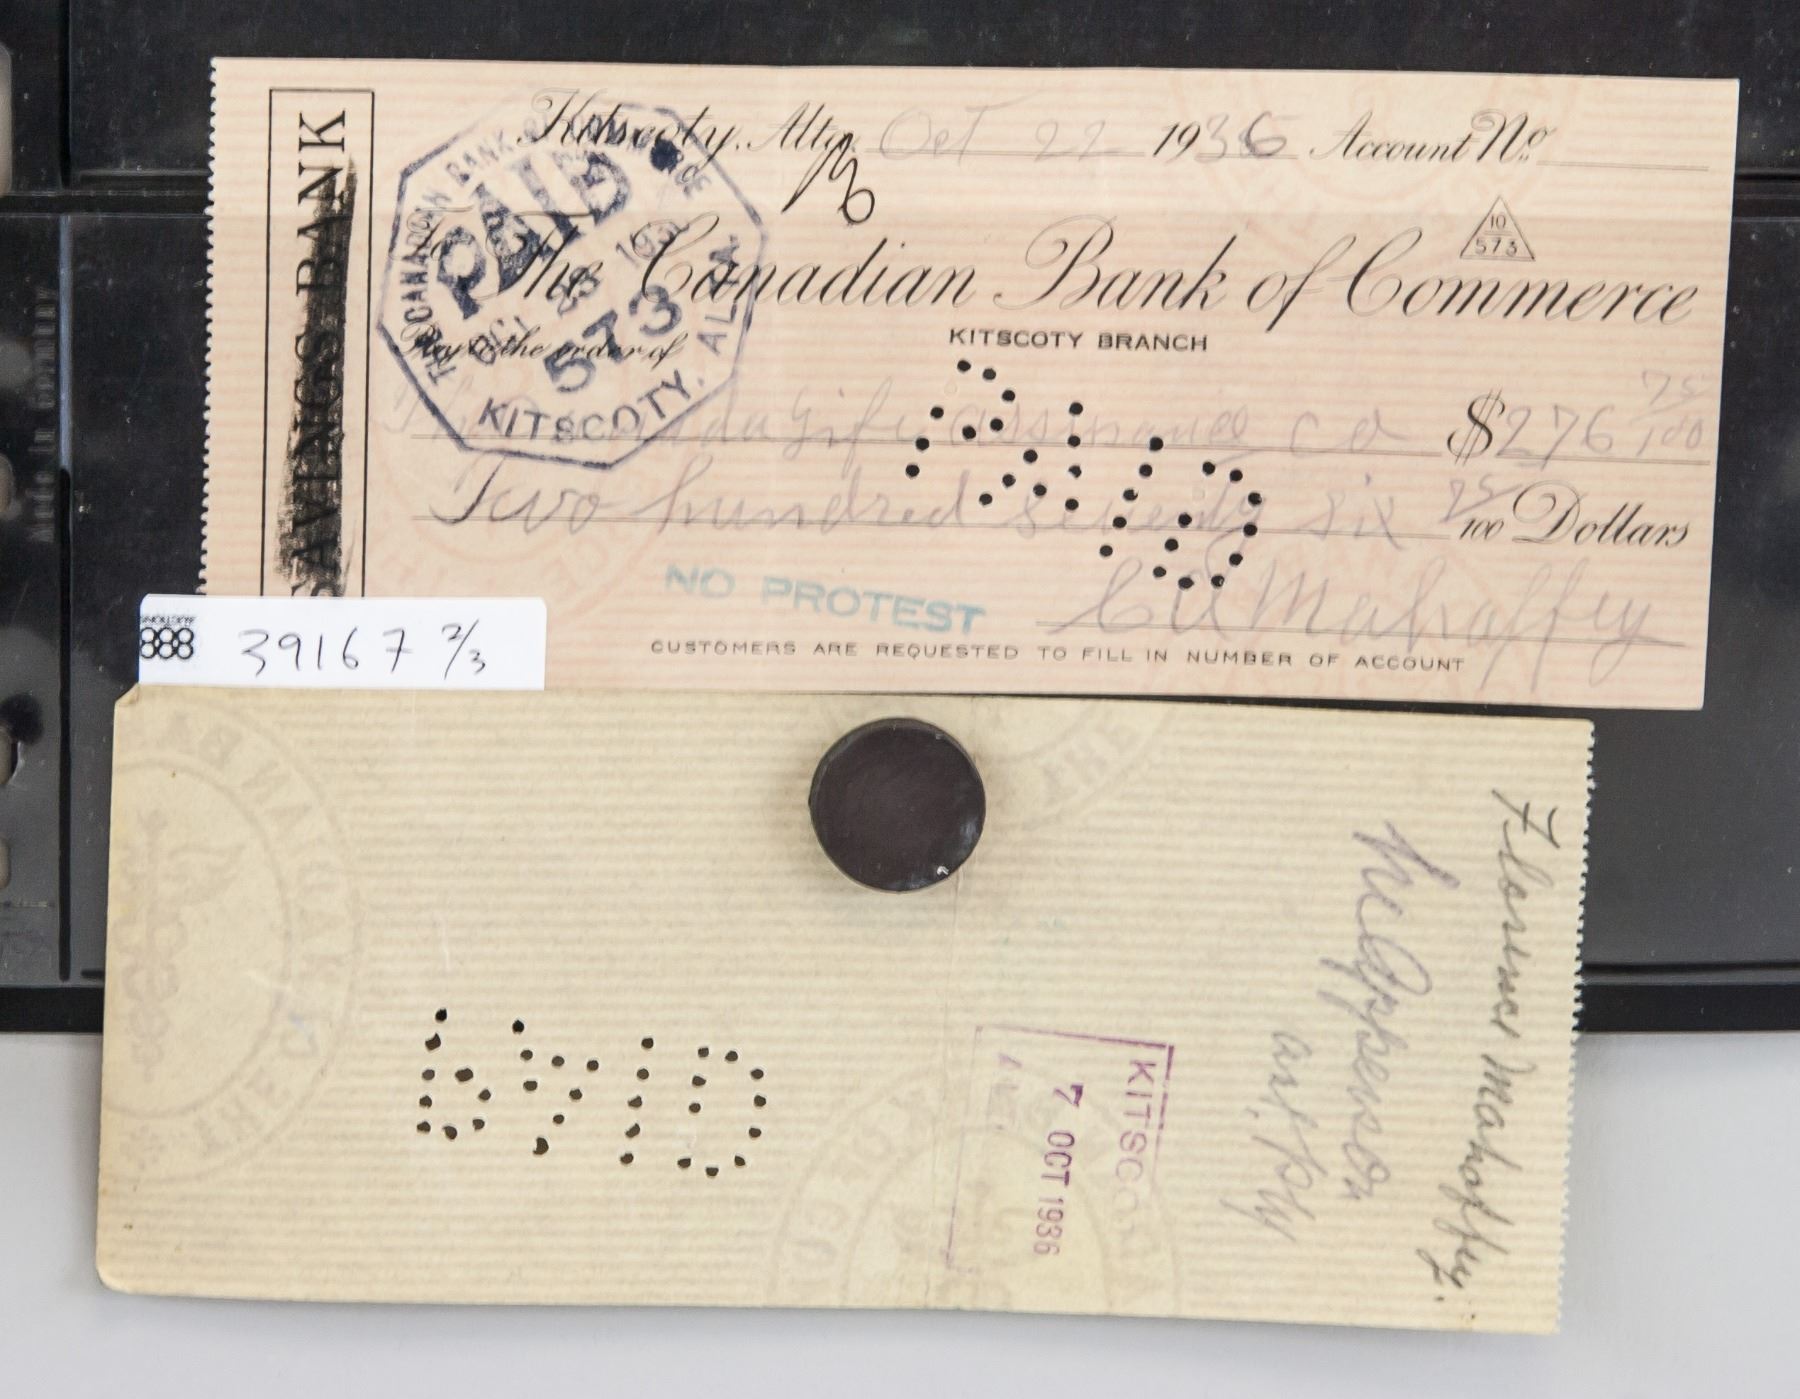 SAVINGS BANK
Kitscoty, Alta. Oct 22 1936 Account No.
THE CANADIAN BANK OF COMMERCE
PAID
OCT 23 1936
573
KITSCOTY, ALTA.
10
573
The Canadian Bank of Commerce
KITSCOTY BRANCH
Pay to the order of
The Canada Life assurance co $276 75/100
Two hundred seventy six 75/100 Dollars
NO PROTEST
CU Mahaffey
CUSTOMERS ARE REQUESTED TO FILL IN NUMBER OF ACCOUNT
888
39167 2/3
Florence Mahaffey.
KITSCOTY
7 OCT 1936